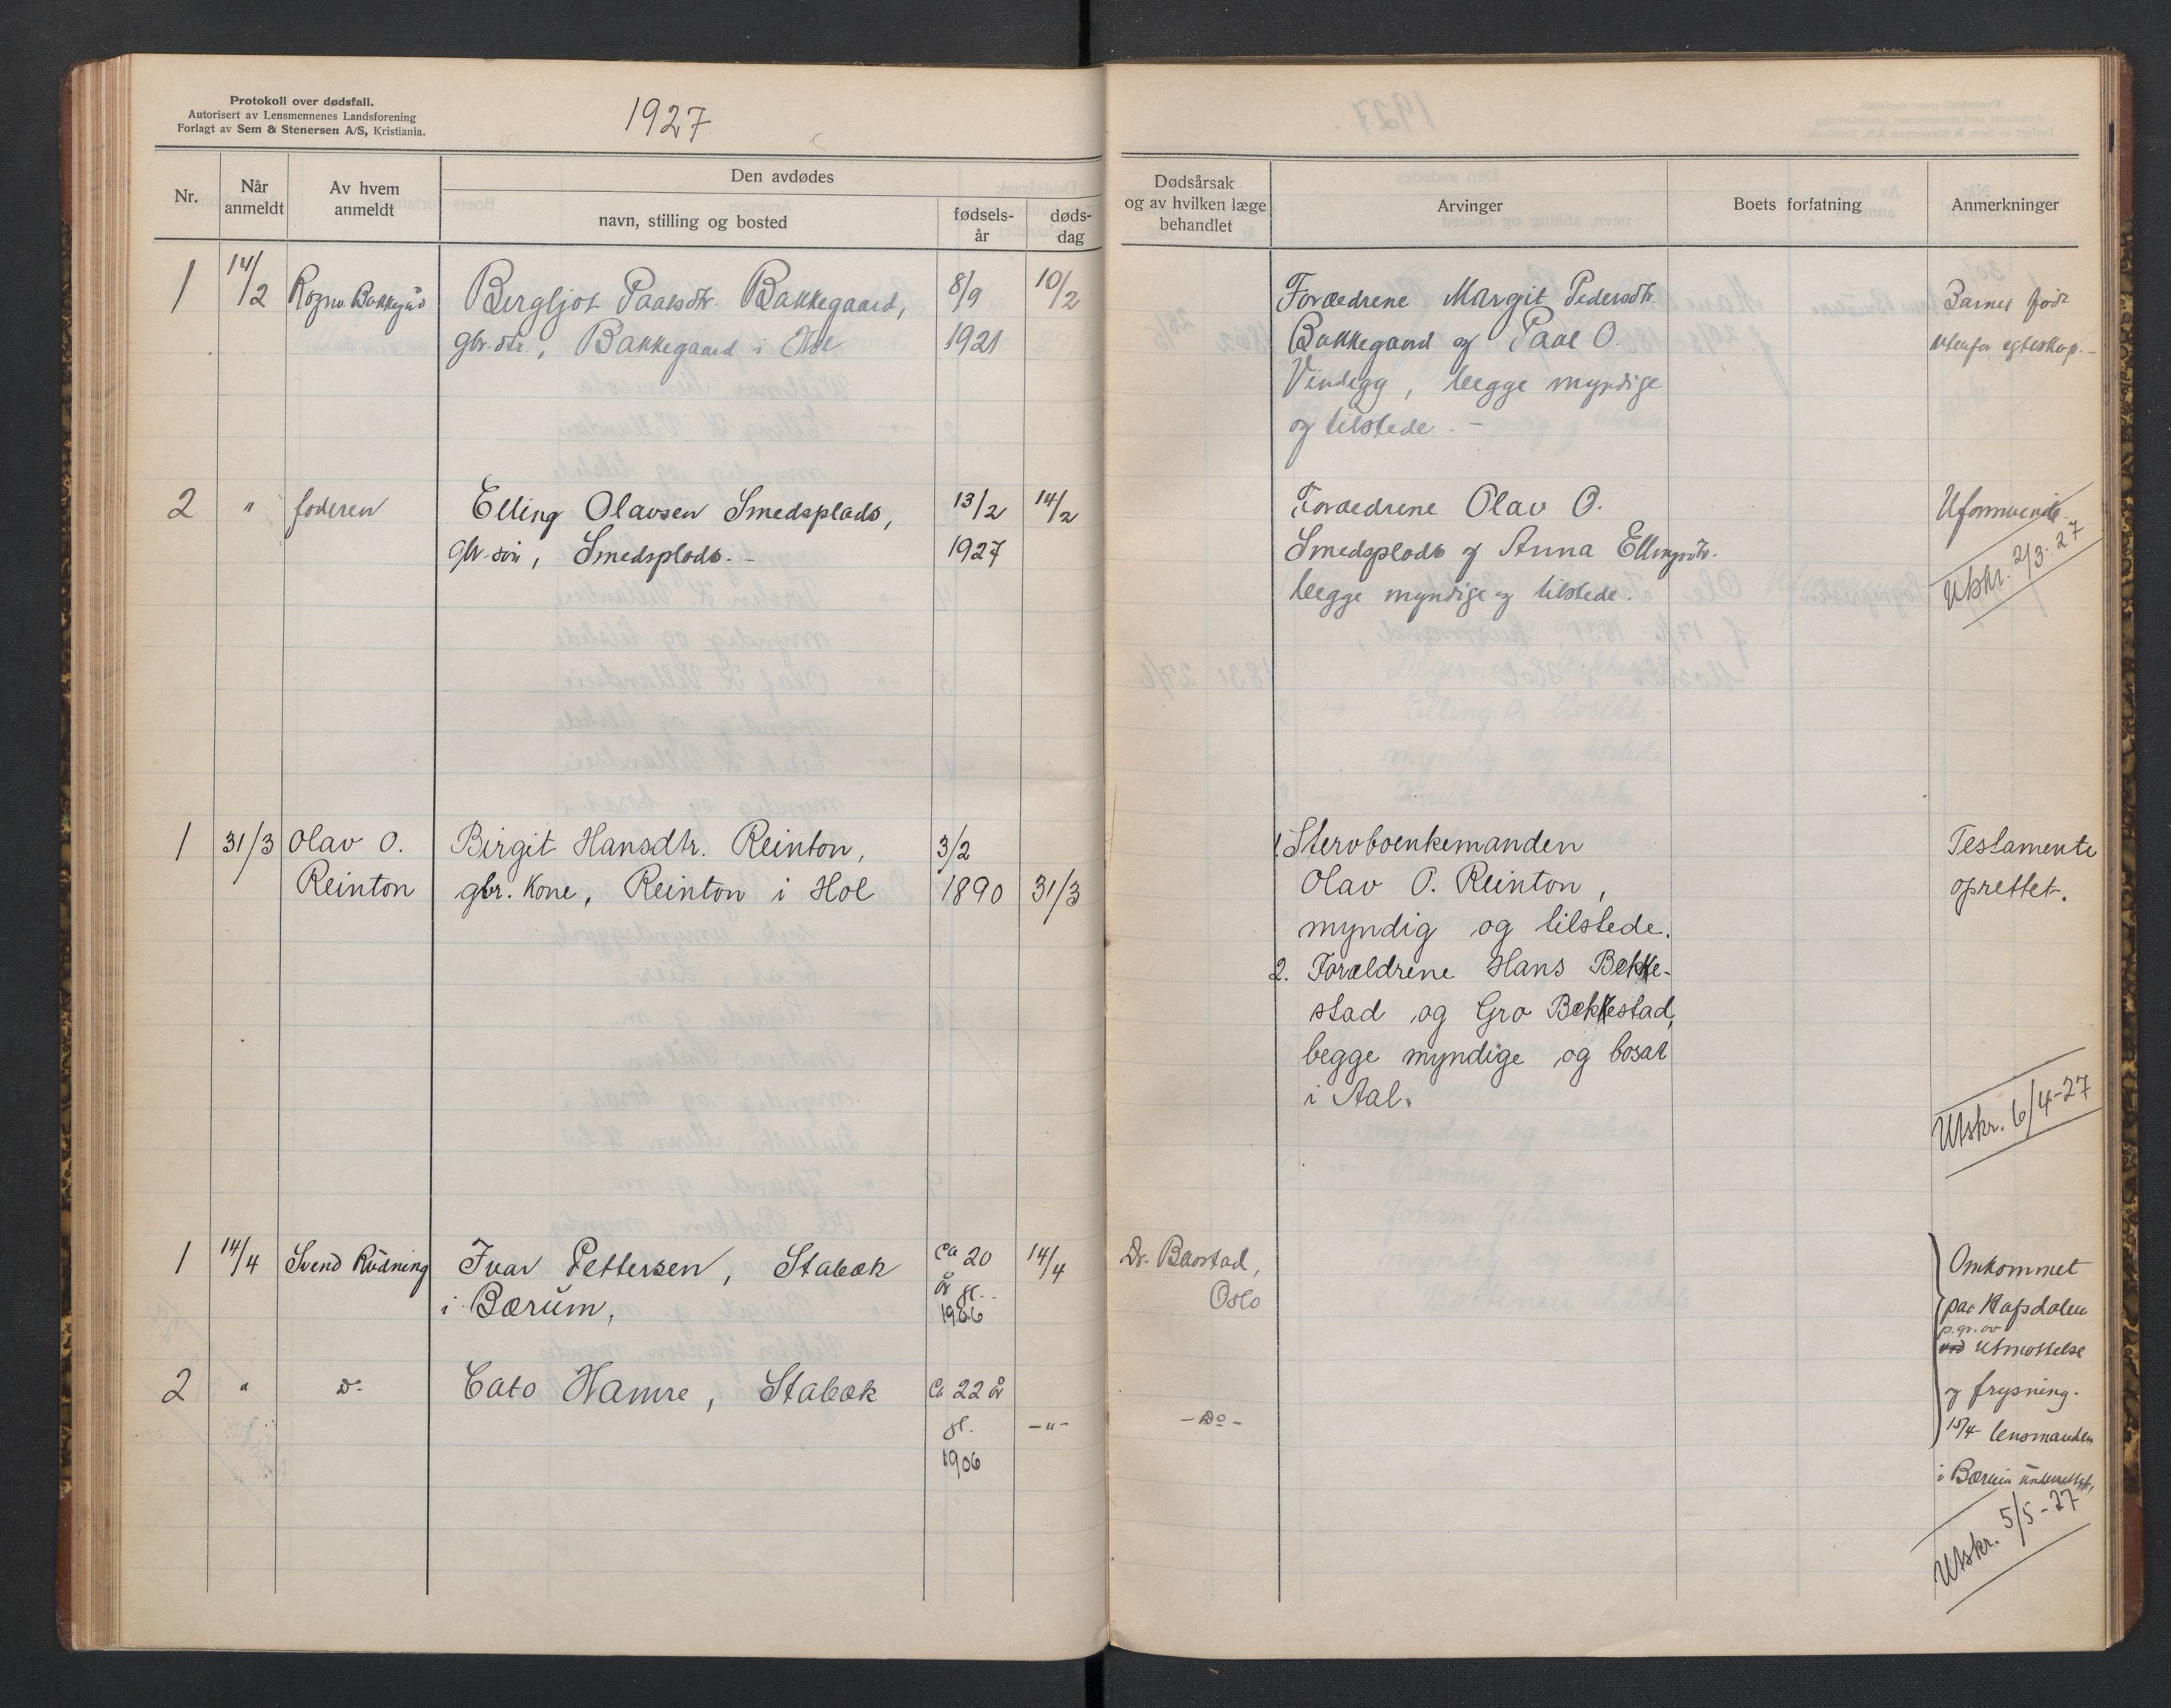 Protokoll over dødsfall.
Autorisert av Lensmennenes Landsforening
Forlagt av Sem & Stenersen A/S, Kristiania.
1927
Nr.
Når anmeldt
Av hvem anmeldt
Den avdødes
navn, stilling og bosted
fødsels-år
døds-dag
Dødsårsak og av hvilken læge behandlet
Arvinger
Boets forfatning
Anmerkninger
1 14/2 Bergljot Paalsdtr. Bakkegaard, 8/9 10/2
gbr.dtr., Bakkegaard i Hol 1921
Forældrene Margit Pedersdtr.
Bakkegaard og Paal O.
Vindegg, begge myndige
og tilstede. –
Barnet født
utenfor egteskap. –
2 " faderen Elling Olavsen Smedsplads, 13/2 14/2
gbr. søn, Smedsplads. – 1927
Forældrene Olav O.
Smedsplads og Anna Ellingsdtr.
begge myndige og tilstede.
Uformuende.
Utskr. 2/3-27
1 31/3 Olav O. Birgit Hansdtr. Reinton, 3/2
Reinton gbr. Kone, Reinton i Hol 1890 31/3
1. Stervboenkemanden
Olav O. Reinton,
myndig og tilstede.
2. Forældrene Hans Bekke-
stad og Gro Bekkestad,
begge myndige og bosat
i Aal.
Testamente
oprettet.
Utskr. 6/4-27
1 14/4 Svend Rudning Ivar Pettersen, Stabæk ca 20 14/4
i Bærum, år gl.
1906
Dr. Baastad,
Oslo
2 " Do Cato Hamre, Stabæk ca 22 år
gl. –"–
1906
– Do –
Omkommet
paa Rafsdalen
p.gr. av
ved utmattelse
og frysning.
15/4 lensmanden
i Bærum underrettet,
Utskr. 5/5-27